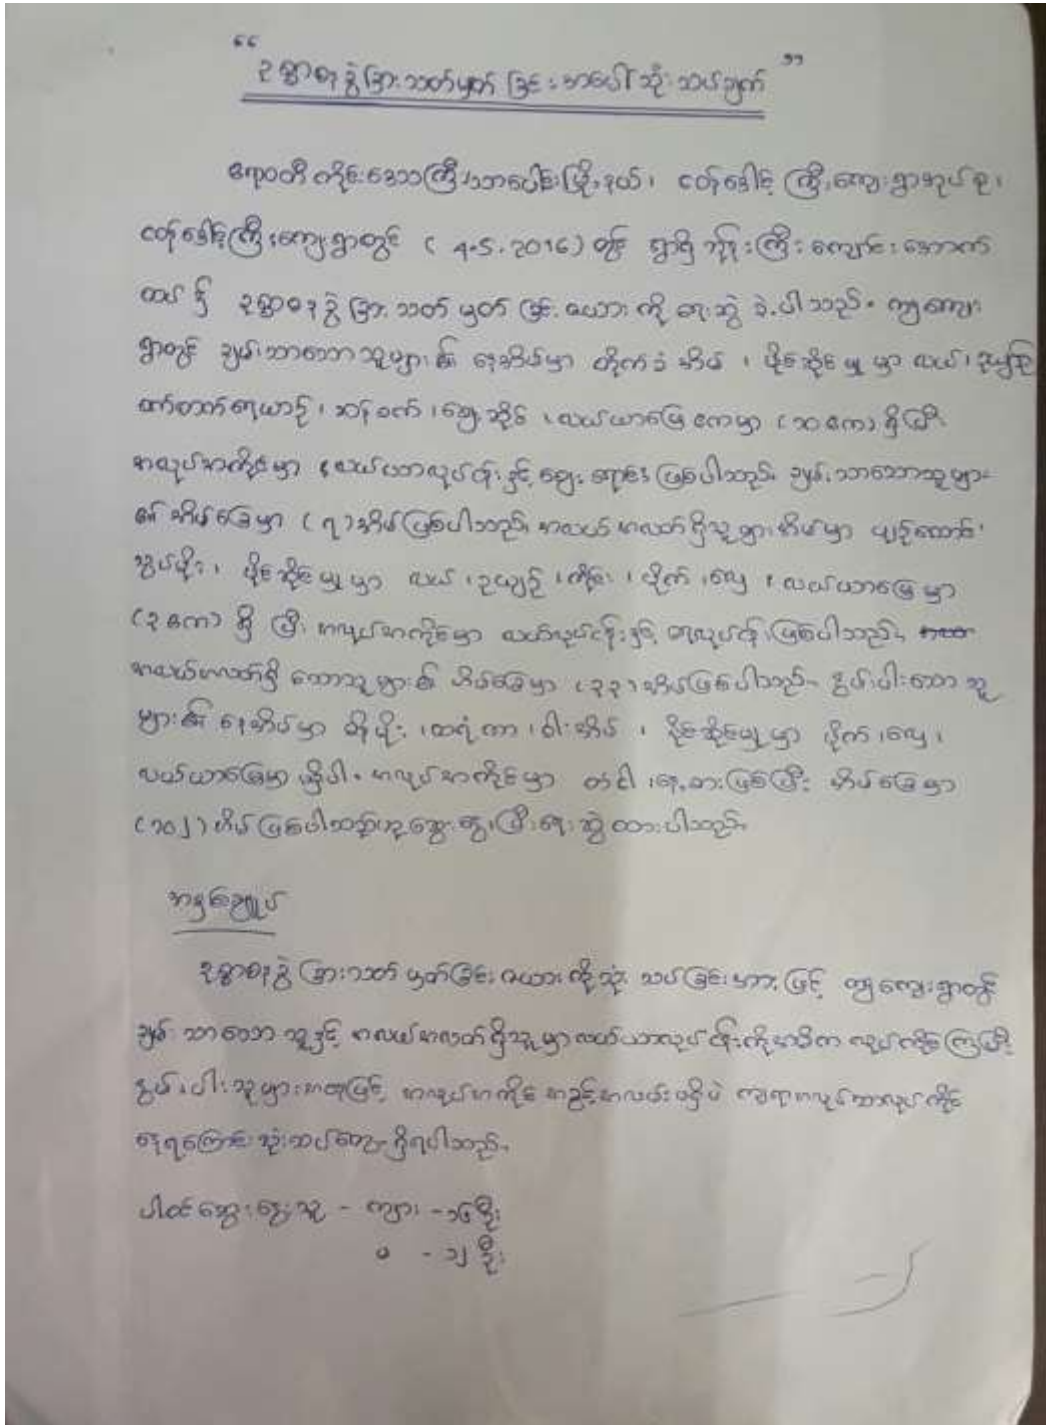 “ ဥစ္စာဓနခွဲခြားသတ်မှတ်ခြင်းအပေါ်သုံးသပ်ချက် ”
ဧရာဝတီတိုင်းဒေသကြီး၊ သာပေါင်းမြို့နယ်၊ ကြီးကျေးရွာအုပ်စု၊
ကြီးကျေးရွာတွင် ( 4.5.2016 ) တွင် ရွာရှိဘုန်းကြီးကျောင်းအောက်
ထပ်၌ ဥစ္စာဓနခွဲခြားသတ်မှတ်ခြင်းဇယားကို ရေးဆွဲခဲ့ပါသည်။ ကျေး
ရွာတွင် ချမ်းသာသောသူများ၏ နေအိမ်မှာ တိုက်ခံအိမ်၊ ပိုင်ဆိုင်မှုမှာ လယ်၊ ဥယျာဉ်
ဆန်စက်၊ ဈေးဆိုင်၊ လယ်ယာမြေဧကမှာ (၁၀ဧက) ရှိပြီး
အလုပ်အကိုင်မှာ လယ်ယာလုပ်ငန်းနှင့် ဈေးရောင်း ဖြစ်ပါသည်။ ချမ်းသာသောသူများ
၏ အိမ်ခြေမှာ (၇) အိမ်ဖြစ်ပါသည်။ အလယ်အလတ်ရှိသူများအိမ်မှာ ပျဉ်ထောင်
သွပ်မိုး၊ ပိုင်ဆိုင်မှုမှာ လယ်၊ ဥယျာဉ်၊ ကိုင်း၊ ပိုက်၊ လှေ၊ လယ်ယာမြေမှာ
(၃ဧက) ရှိပြီး အလုပ်အကိုင်မှာ လယ်လုပ်ငန်းနှင့် ရေလုပ်ငန်းဖြစ်ပါသည်။
အလယ်အလတ်ရှိသောသူများ၏ အိမ်ခြေမှာ (၃၃) အိမ်ဖြစ်ပါသည်။ နွမ်းပါးသောသူ
များ၏ နေအိမ်မှာ ဓနိမိုး၊ ထရံကာ၊ ဝါးအိမ်၊ ပိုင်ဆိုင်မှုမှာ ပိုက်၊ လှေ၊
လယ်ယာမြေမှာ မရှိပါ။ အလုပ်အကိုင်မှာ တံငါ၊ နေ့စားဖြစ်ပြီး အိမ်ခြေမှာ
(၁၀၂) အိမ်ဖြစ်ပါသည်ဟု ဆွေးနွေးပြီးရေးဆွဲထားပါသည်။
အနှစ်ချုပ်
ဥစ္စာဓနခွဲခြားသတ်မှတ်ခြင်းဇယားကိုသုံးသပ်ခြင်းအားဖြင့် ကျေးရွာတွင်
ချမ်းသာသောသူနှင့် အလယ်အလတ်ရှိသူမှာ လယ်ယာလုပ်ငန်းကိုအဓိက လုပ်ကိုင်ကြပြီး
နွမ်းပါးသူများအနေဖြင့် အလုပ်အကိုင် အခွင့်အလမ်းမရှိပဲ ကျရာအလုပ်သာလုပ်ကိုင်
နေရကြောင်း သုံးသပ်တွေ့ရှိရပါသည်။
ပါဝင်ဆွေးနွေးသူ - ကျား - ၁၆ ဦး
မ - ၁၂ ဦး